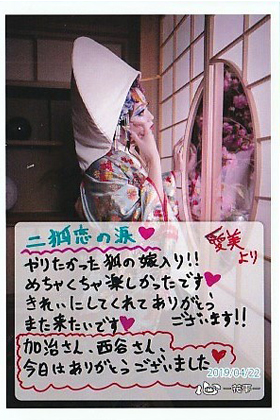 二狐恋の涙♥
愛美より
やりたかった狐の嫁入り!!
めちゃくちゃ楽しかったです♥
きれいにしてくれてありがとう
ございます!!
また来たいです♥
加治さん、西谷さん、
今日はありがとうございました♥
2019/04/22